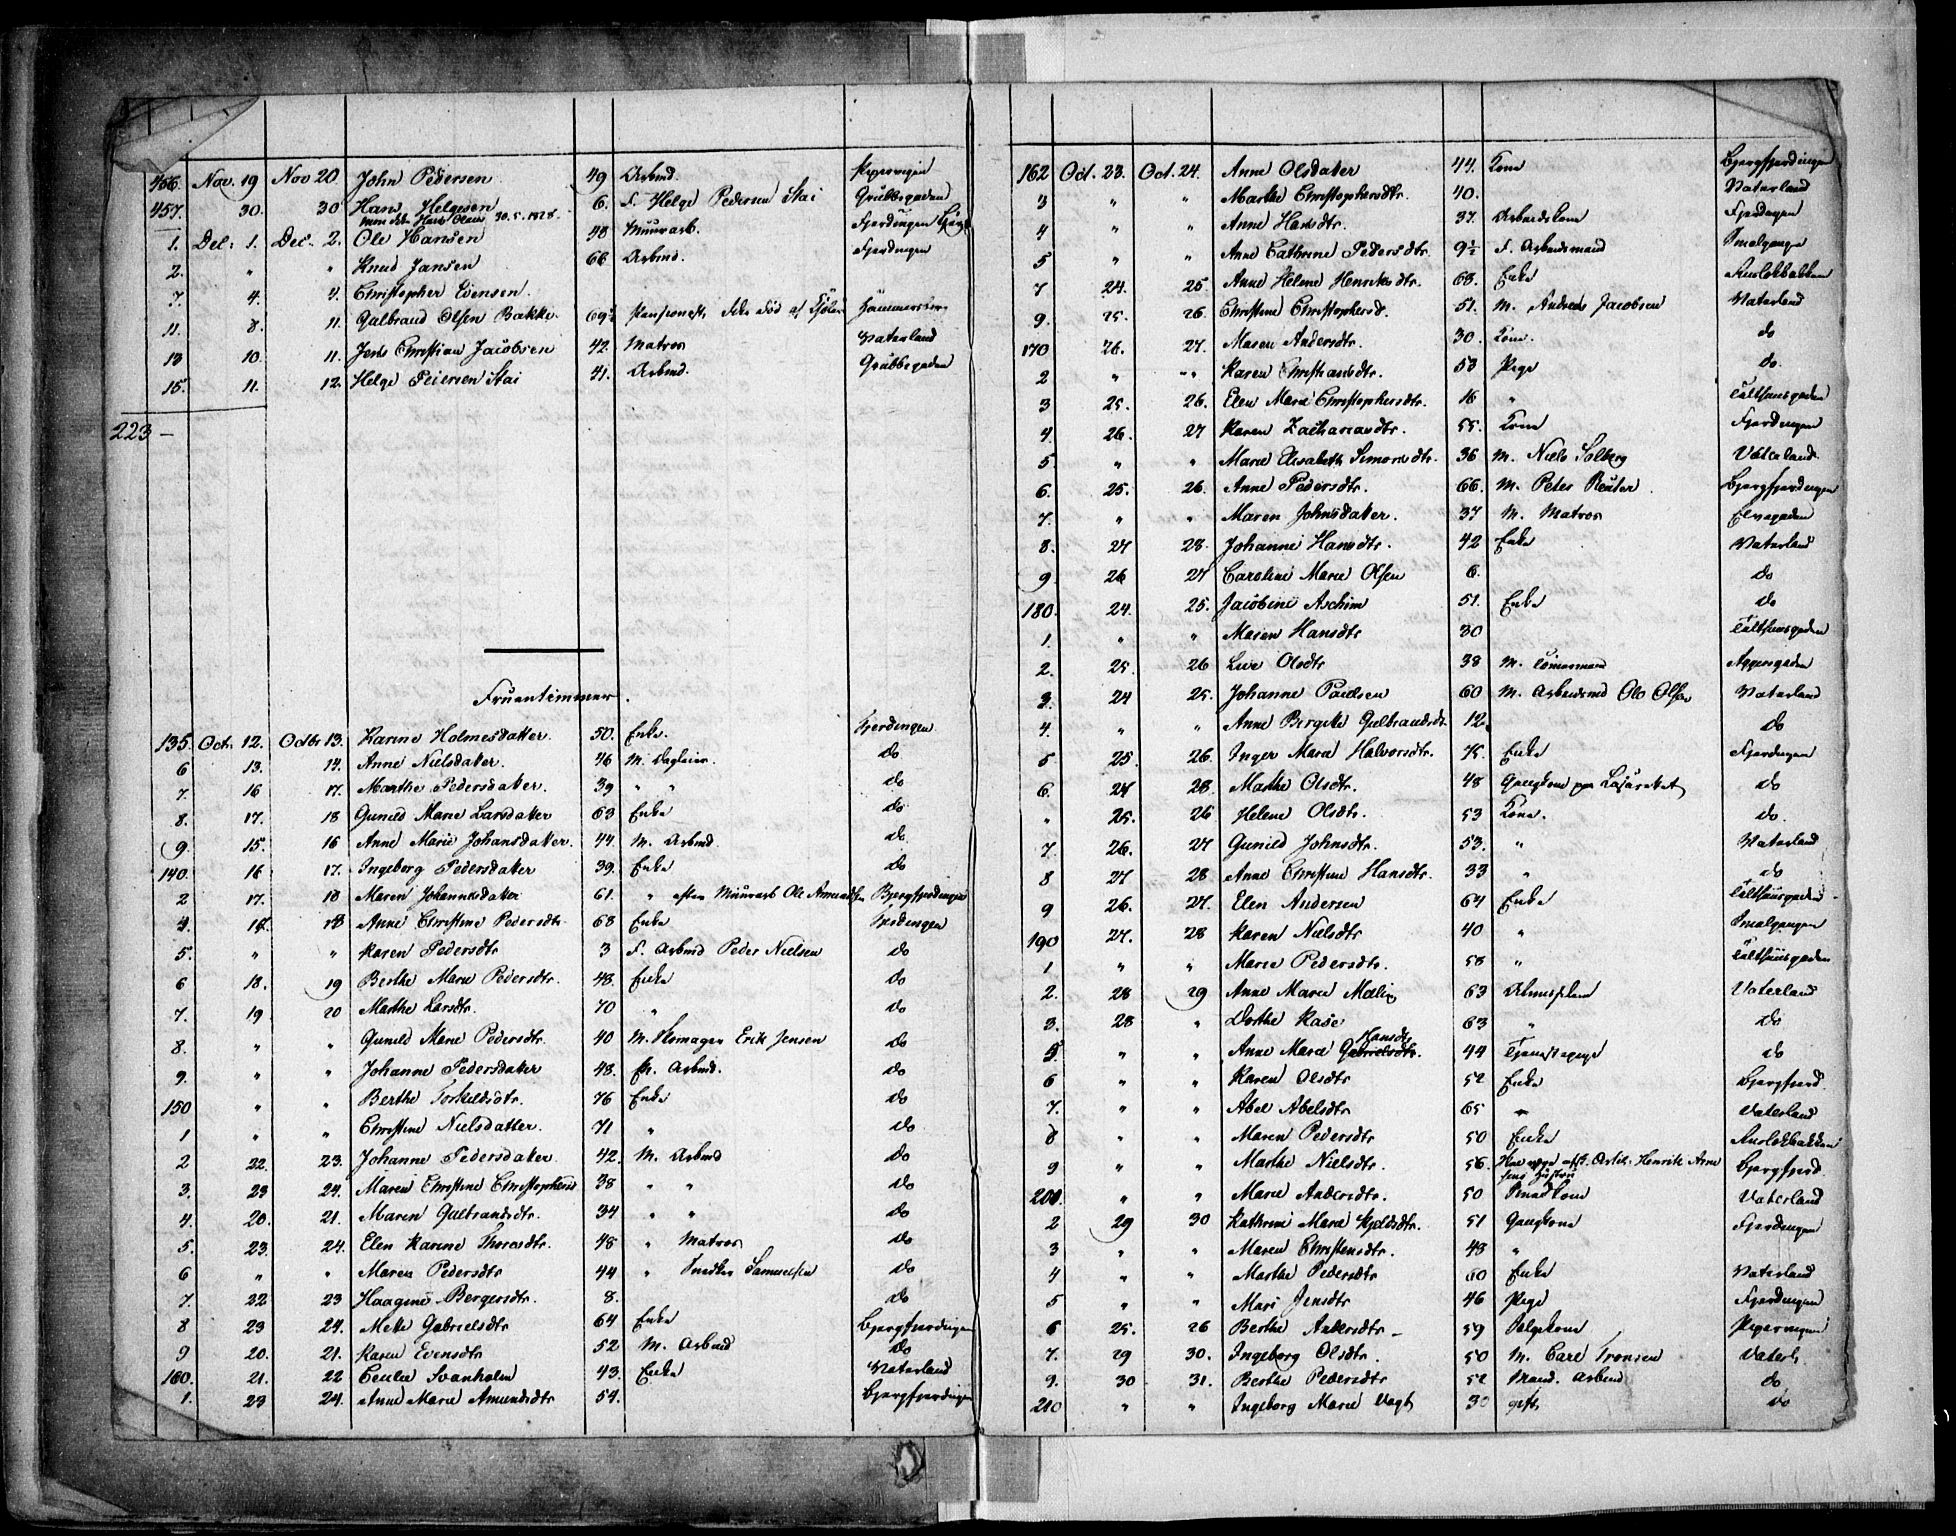 456. Nov. 19 Nov 20. John Pedersen 49 Arbmd. Pipervigen
457. 30. 30 Hans Helgesen 6. F. Helge Pedersen Stai Grubbegaden
Hans Olsen 30.5.1828.
1. Dec: 1. Dec. 2. Ole Hansen 48 Muurarb. Fjerdingen
2. " " Knud Jansen 66 Arbmd. Fjerdingen
7. 4. 4. Christopher Evensen.
11. 8. 11. Gulbrand Olsen Bakke 69½ Pensionist
13 10. 11. Jens Christian Jacobsen 42. Matros Vaterland
15. 11. 12. Helge Pedersen Stai 41. Arbmd. Grubbegaden
223 –
Fruentimmer.
135. Oct. 12. Octbr 13. Karine Holmesdatter 50. Enke. Fjerdingen
6 13. 14. Anne Nielsdater. 46 M. Dagleier. do
7. 16 17. Marthe Pedersdater. 39 " " do
8. 17. 18 Gunild Marie Larsdater 63 Enke do
9. 15. 16 Anne Marie Johansdater. 44. M. Arbmd. do
140. 16 17. Ingeborg Pedersdater 39. Enke do
2 17. 18 Maren Johannesdater 61. " efter Muurarb Ole Amundsen Bjergfjerdingen
4. 17. 18 Anne Christine Pedersdtr 68 Enke Fjerdingen
5. " " Karen Pedersdtr 3 F. Arbmd Peder Nielsen do
6 18. 19 Berthe Marie Pedersdtr. 48. Enke do
7. 19 20 Marthe Larsdtr. 70 " do
8. " " Gunild Marie Pedersdtr. 40 M. Skomager Erik Jensen do
9. " " Johanne Pedersdater 48. Arbmd. do
150 " " Berthe Torkeldsdtr. 76 Enke do
1 " " Christine Nielsdatter. 71 " do
2 22. 23. Johanne Pedersdater. 42. M. Arbmd do
3. 23 24. Maren Christine Christophersd 38 " " do
4. 20. 21. Maren Gulbrandsdtr. 34 " " do
5. 23. 24. Elen Karine Thoresdtr. 48 " Matros do
6 " " Maren Pedersdtr 44 " Snedker Samuelsen do
7. 22 23 Haagine Bergersdtr. 8. do
8 23 24. Mette Gabrielsdtr 64 Enke Bjergfjerdingen
9 20. 21. Karen Evensdtr 52 M. Arbmd do
160. 21. 22 Cecilie Svanholm 43. Enke Vaterland
1. 23 24. Anne Marie Amundsdtr 54. Bjergfjerdingen
162 Oct. 23. Oct. 24. Anne Olsdater 44. Kone Bjergfjerdingen
3 " " Marthe Christophersdtr. 40. Vaterland
4 " " Anne Hansdtr. 37. Arbeidskone Fjerdingen
5 " " Anne Cathrine Pedersdtr. 9½ F. Arbeidsmand Smalgangen
7 24. 25 Anne Helene Henriksdtr. 68. Enke Enelokbakken
9. 25. 26 Christine Christophersd. 51. M. Andreas Jacobsen Vaterland
170 26. 27. Maren Andersdtr. 30. Kone. do
2 " " Karen Christiansdtr. 53 Pige do.
3 25. 26. Elen Marie Christophersdtr. 16 " Tugthuusgaden
4. 26. 27 Karen Zachariasdtr. 55. Kone Fjerdingen
5. " " Marie Elisabeth Simonsdtr. 36 M. Niels Solberg Vaterland.
6. 25. 26. Anne Pedersdtr. 66. M. Peter Reuter. Bjergfjerdingen
7. " " Maren Johnsdater. 37 M. Matros Elvegaden
8. 27 28. Johanne Hansdtr. 42 Enke Vaterland
9. 26 27 Caroline Marie Olsen 6. do
180. 24. 25. Jacobine Aschim 51. Enke do
1. " " Maren Hansdtr 30 Tugthuusgaden
2. 25. 26 Live Olsdtr 38 M. Tømermand Aggersgaden
3. 24 25. Johanne Paulsen 60 M. Arbeidsmd Ole Olsen Vaterland
4. " " Anne Birgitte Gulbrandsdtr. 12. do
5 25. 26. Inger Marie Halvorsdtr. 75. Enke Fjerdingen
6. 27 28. Marthe Olsdtr. 48 Gangkone paa Lazarettet do
" 25. 26 Helene Olsdtr. 53 Kone. do.
7. 26. 27 Gunild Johnsdtr. 53. " Vaterland
8 27 28 Anne Christine Hansdtr. 33 " do
9 26. 27. Elen Andersen 64 Enke Tugthuusgaden
190 27. 28 Karen Nielsdtr 40 " Smalgangen
1 " " Marie Pedersdtr. 58 " Tugthuusgaden
2. 28 29 Anne Marie Moelin 63 Almisselem Vaterland
3. 28 " Dorthe Kase 63 " do
5 " " Anne Marie Gabrielsdtr. Hansdtr 44 Tjenestepige do
6 " " Karen Olsdtr 52 Enke Bjergfjerd.
7. " " Abel Abelsdtr 65 " Vaterland
8 " " Maren Pedersdtr 50 Enke Enelokbakken
9 " " Marthe Nielsdtr. 56. Henrik Arne Bjergfjerd.
200. " " Marie Andersdtr. 50 Vaterland
2 29 30 Kathrine Marie Kjeldsdtr. 51 Gangkone Fjerdingen
3 " " Maren Christensdtr. 48 "
4 " " Marthe Pedersdtr 60 Enke Vaterland
5 " " Mari Jensdtr 46 Pige Fjerdingen
6 25. 26 Berthe Andersdtr – 59 Pipervigen
7. 29 30. Ingeborg Olsdtr. 50 M. Carl Tronsen Vaterl.
9. 30 31. Berthe Pedersdtr 52 Mand. Arbmd do
210 " " Ingeborg Marie Vogt 30 gift do